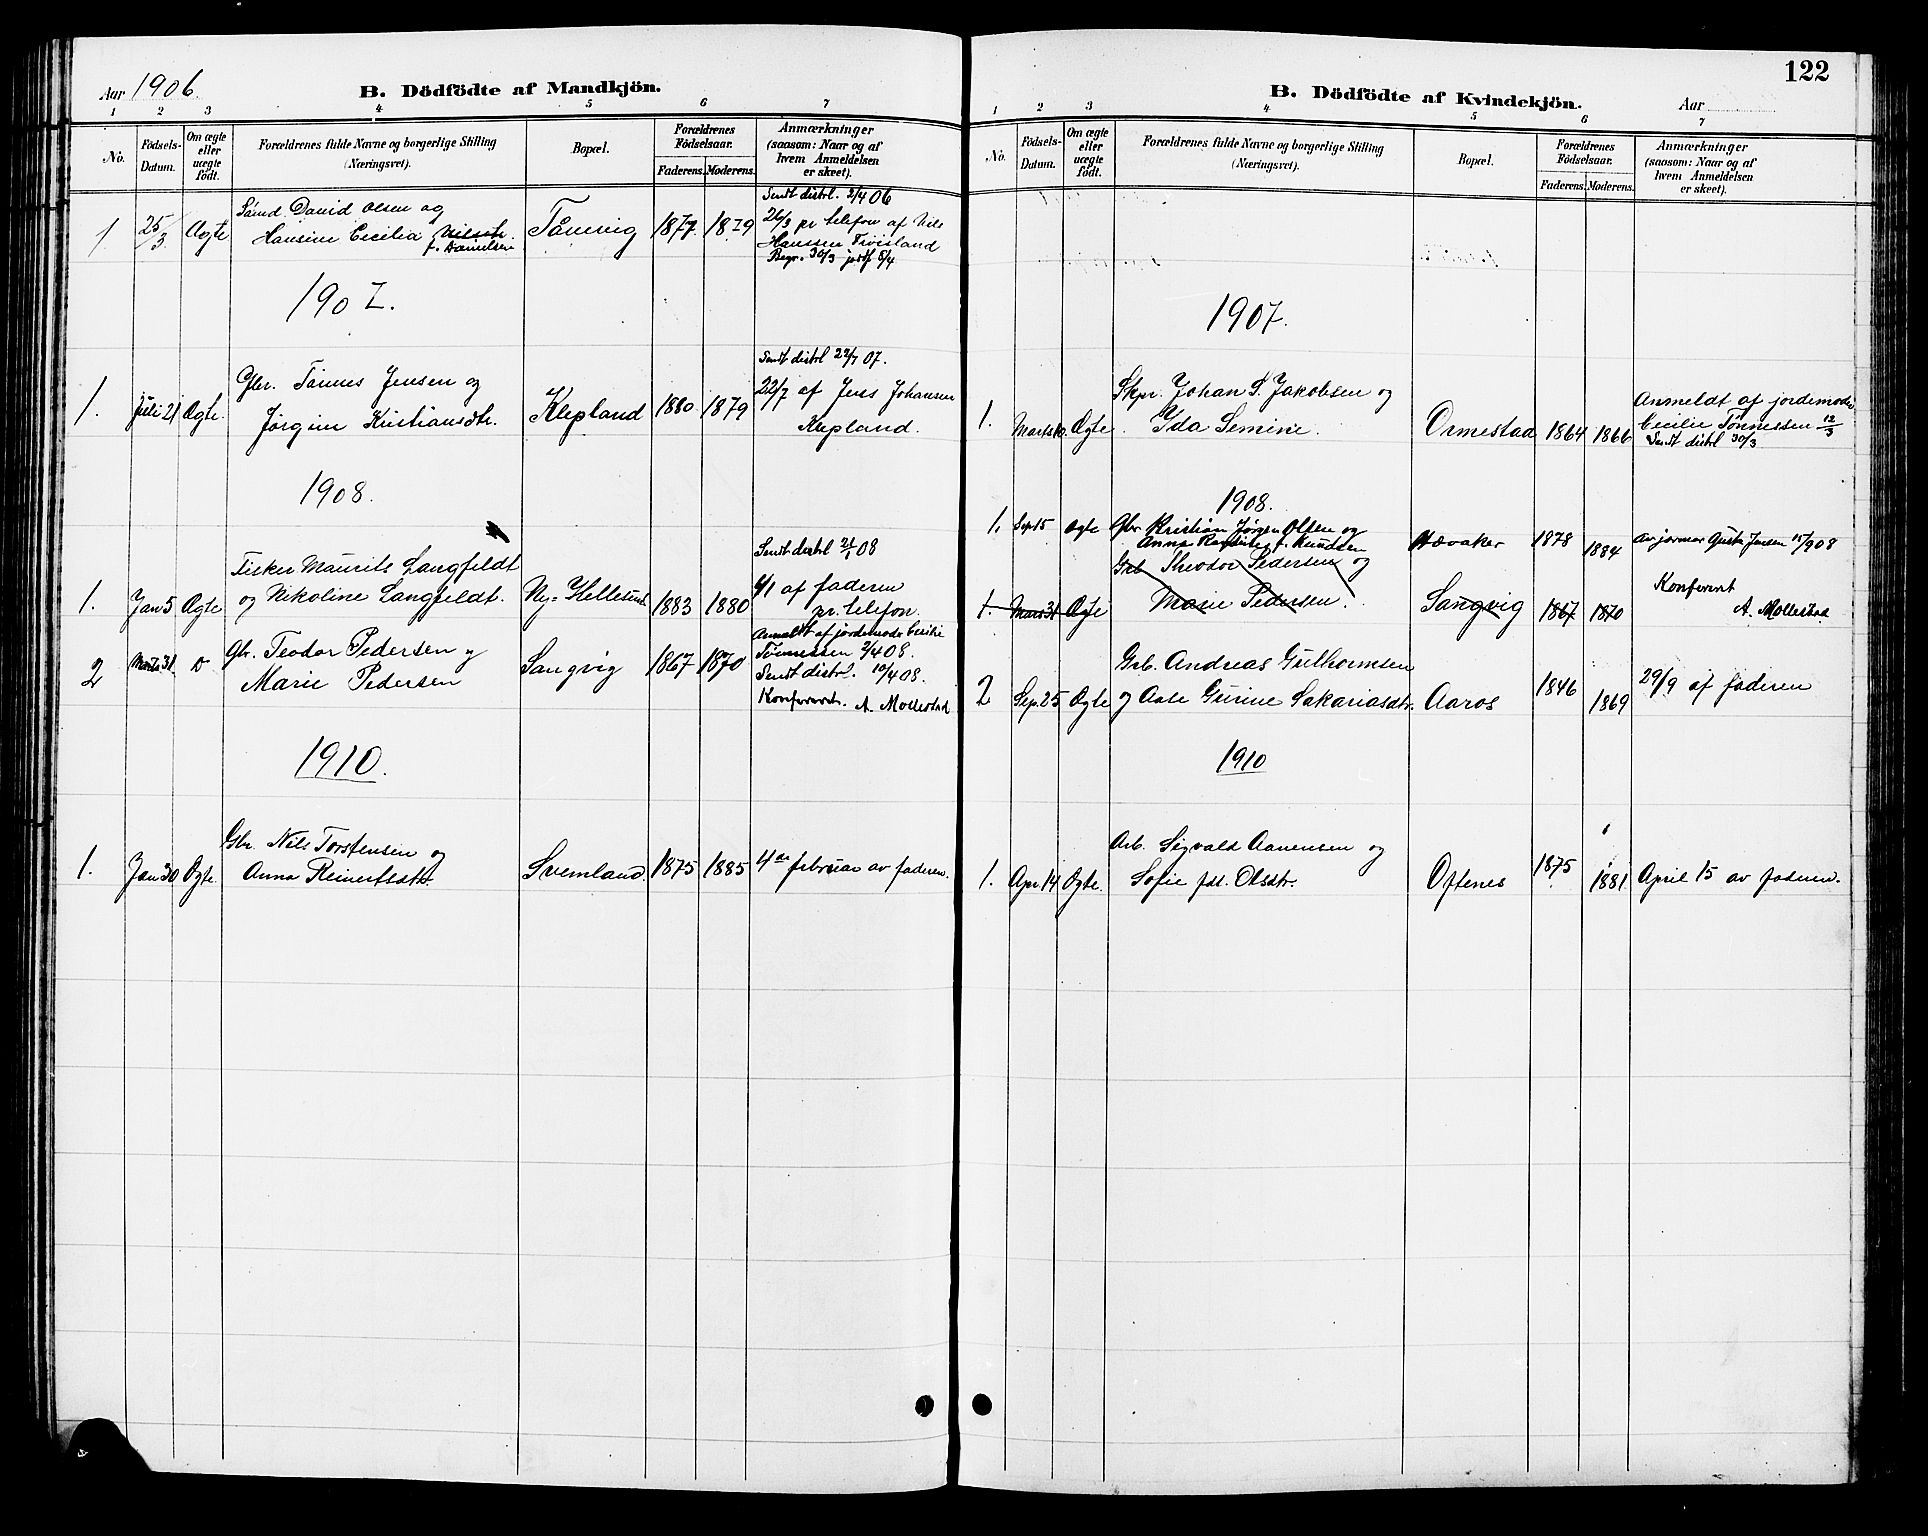 Aar 1906
B. Dödfödte af Mandkjön.
1 2 3 4 5 6 7
No.
Födsels-Datum.
Om ægte eller uægte födt.
Forældrenes fulde Navne og borgerlige Stilling (Næringsvei).
Bopæl.
Forældrenes Födselsaar.
Faderens. Moderens.
Anmærkninger (saasom: Naar og af hvem Anmeldelsen er skeet).
1 25/3 Ægte Sömd. David Olsen og
Hansine Cecilia f. Danielsen
1877 1879
Sendt distrl. 2/4 06
26/3 pr telefon af Nils
Hanssen
Begr. 30/3 jordf 5/4
1907.
1. Juli 21 Ægte. Gbr. Tönnes Jensen og
Jørgine Kristiansdtr.
Klepland 1880 1879
Sendt distrl 22/7 07.
22/7 af Jens Johansen
Klepland.
1908.
1. Jan 5 Ægte Fisker Maurits Langfeldt
og Nikoline Langfeldt.
Ny-Hellesund 1883 1880
Sendt distrl 21/1 08
6/1 af faderen
pr. telefon.
2 Marts 31 D Gbr. Teodor Pedersen og
Marie Pedersen
Sangvig 1867 1870
Anmeldt af jordemoder Cecilie
Tönnessen 2/4 08.
Sendt distrl. 10/4 08.
Konfereret. A. Mollestad
1910.
1. Jan 30 Ægte. Gbr. Nils Torstensen og
Anna Reinertsdtr.
1875 1885
4de februar av faderen.
122
B. Dödfödte af Kvindekjön.
Aar
1 2 3 4 5 6 7
No.
Födsels-Datum.
Om ægte eller uægte födt.
Forældrenes fulde Navne og borgerlige Stilling (Næringsvei).
Bopæl.
Forældrenes Födselsaar.
Faderens. Moderens.
Anmærkninger (saasom: Naar og af hvem Anmeldelsen er skeet).
1907.
1. Marts 10. Ægte Skpr. Johan S. Jakobsen og
Ida Semine.
Ormestad 1864 1866
Anmeldt af jordemoder
Cecilie Tönnessen 12/3
Sendt distrl 30/3
1908.
1. Sep 15 Ægte Gbr. Kristian Jørgen Olsen og
Anna f. Knudsen
1878 1884
Av jormor Gusta Jensen 15/9 08
1. Mars 31 Ægte Grb. Theodor Pedersen og
Marie Pedersen.
Sangvig 1867 1870
Konfereret
A. Mollestad
2 Sep. 25 Ægte Grb. Andreas Gulhormsen
og Aase Gurine Sakariasdtr.
Aaros 1846 1869
29/9 af faderen
1910
1. Apr 14 Ægte. Arb. Sigvald Aanensen og
Sofie fdt. Olsdtr.
Oftenes 1875 1881
April 15 av faderen.